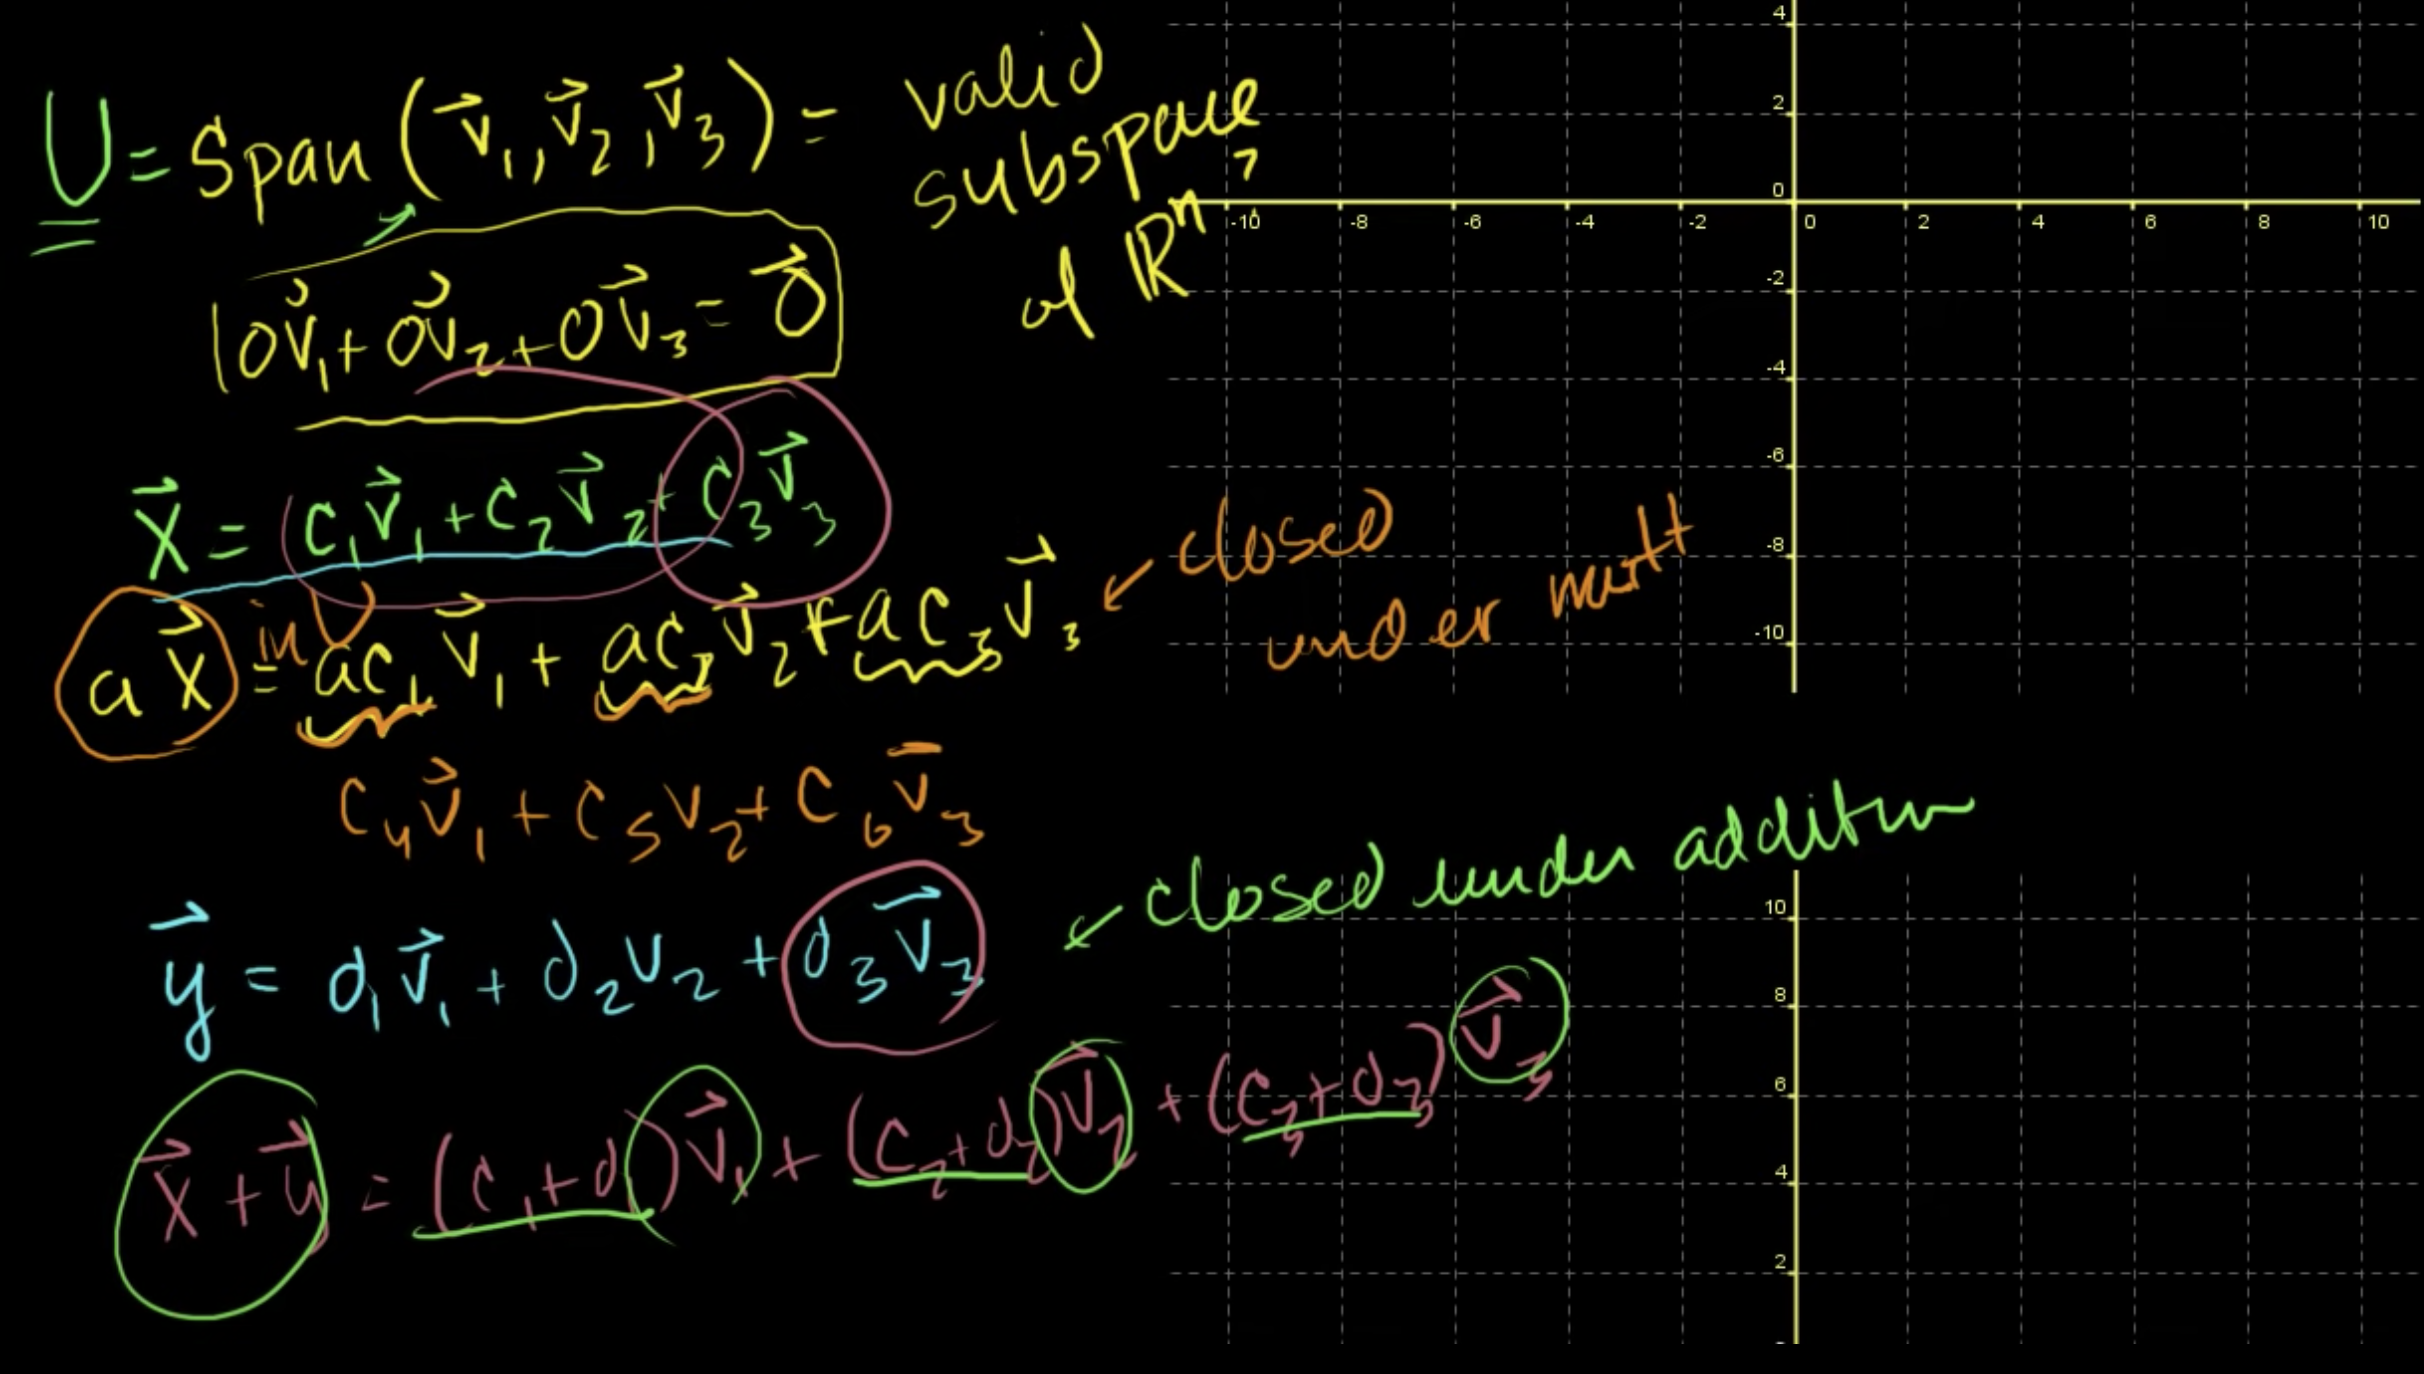 U = Span (v⃗₁, v⃗₂, v⃗₃) = valid
subspace
of ℝⁿ ?
0v⃗₁ + 0v⃗₂ + 0v⃗₃ = 0⃗
x⃗ = c₁v⃗₁ + c₂v⃗₂ + c₃v⃗₃
in U
ax⃗ = ac₁v⃗₁ + ac₂v⃗₂ + ac₃v⃗₃ ← closed
under mult
c₄v⃗₁ + c₅v₂ + c₆v⃗₃
y⃗ = d₁v⃗₁ + d₂v₂ + d₃v⃗₃ ← closed under addition
x⃗ + y⃗ = (c₁ + d₁)v⃗₁ + (c₂ + d₂)v⃗₂ + (c₃ + d₃)v⃗₃
4
2
0
-10 -8 -6 -4 -2 0 2 4 6 8 10
-2
-4
-6
-8
-10
10
8
6
4
2